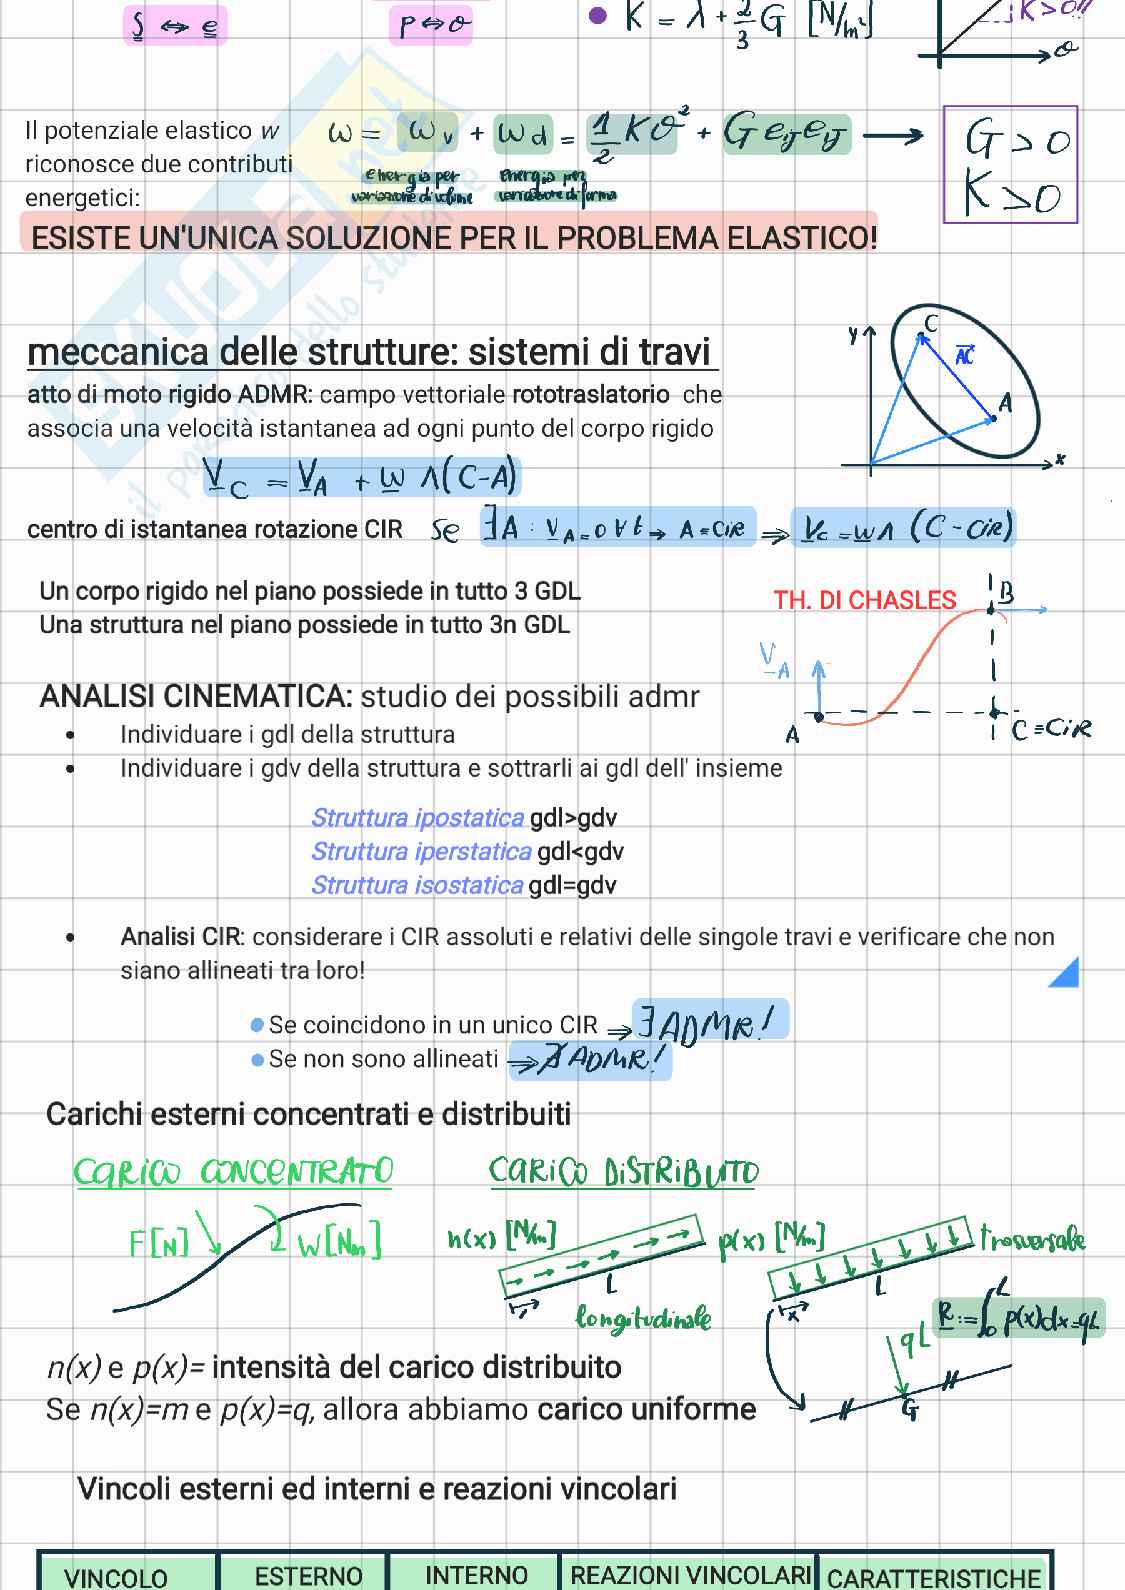 S ⇔ e
P ⇔ θ
K = λ + 2/3 G [N/m²]
K>0!!
θ
Il potenziale elastico w
riconosce due contributi
energetici:
ω = ω_v + ω_d = 1/2 Kθ² + G e_ij e_ij →
energia per variazione di volume
energia per variazione di forma
G > 0
K > 0
ESISTE UN'UNICA SOLUZIONE PER IL PROBLEMA ELASTICO!
meccanica delle strutture: sistemi di travi
atto di moto rigido ADMR: campo vettoriale rototraslatorio che
associa una velocità istantanea ad ogni punto del corpo rigido
y
C
AC
A
x
V_C = V_A + ω ∧ (C-A)
centro di istantanea rotazione CIR se ∃A : V_A = 0 ∀t → A = CIR ⇒ V_C = ω ∧ (C - CIR)
Un corpo rigido nel piano possiede in tutto 3 GDL
Una struttura nel piano possiede in tutto 3n GDL
TH. DI CHASLES
B
V_A
A
C ≡ CIR
ANALISI CINEMATICA: studio dei possibili admr
• Individuare i gdl della struttura
• Individuare i gdv della struttura e sottrarli ai gdl dell' insieme
Struttura ipostatica gdl>gdv
Struttura iperstatica gdl<gdv
Struttura isostatica gdl=gdv
• Analisi CIR: considerare i CIR assoluti e relativi delle singole travi e verificare che non
siano allineati tra loro!
Se coincidono in un unico CIR ⇒ ∃ ADMR!
Se non sono allineati ⇒ ∄ ADMR!
Carichi esterni concentrati e distribuiti
CARICO CONCENTRATO
CARICO DISTRIBUITO
F[N]
W[Nm]
n(x) [N/m]
L
x
longitudinale
p(x) [N/m]
trasversale
L
x
R := ∫₀ᴸ p(x)dx = qL
qL
G
n(x) e p(x)= intensità del carico distribuito
Se n(x)=m e p(x)=q, allora abbiamo carico uniforme
Vincoli esterni ed interni e reazioni vincolari
VINCOLO ESTERNO INTERNO REAZIONI VINCOLARI CARATTERISTICHE